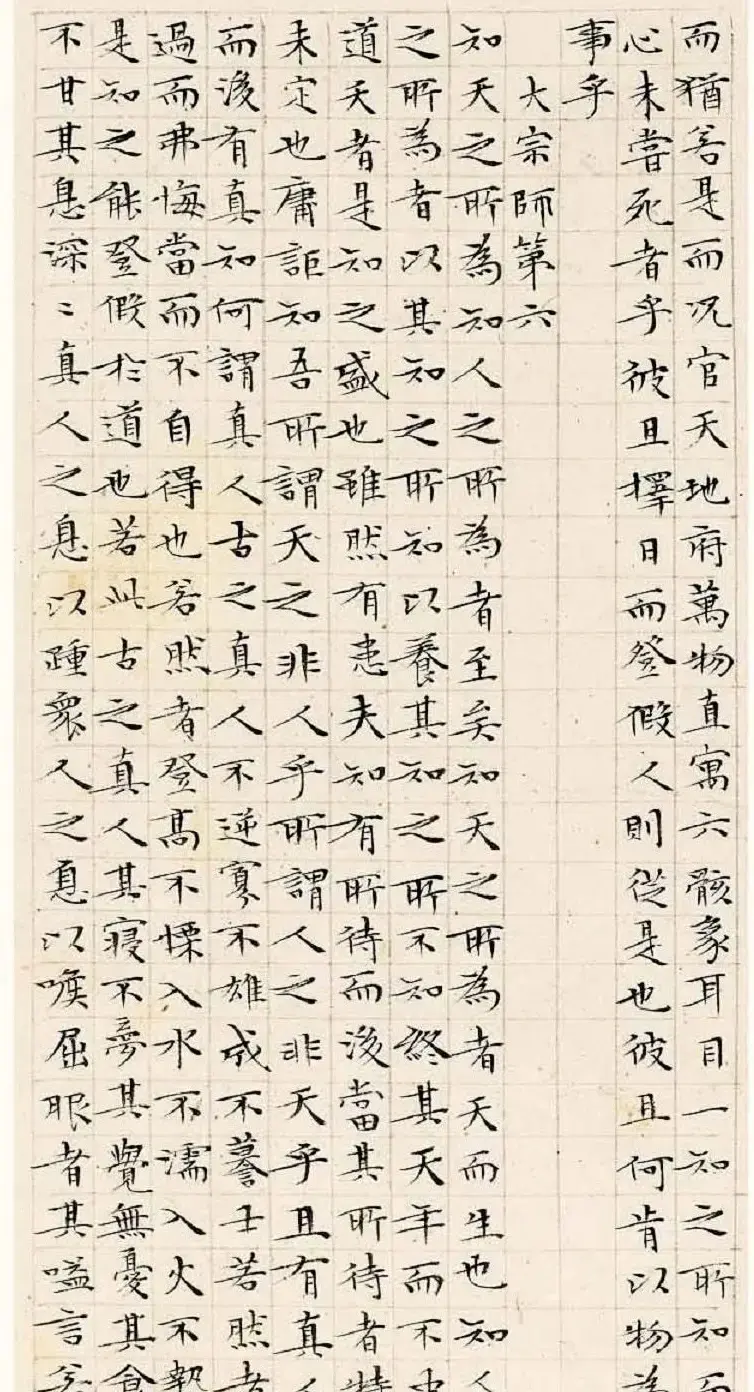 而猶若是而況官天地府萬物直寓六骸象耳目一知之所知而
心未嘗死者乎彼且擇日而登假人則從是也彼且何肯以物為
事乎
大宗師第六
知天之所為知人之所為者至矣知天之所為者天而生也知人
之所為者以其知之所知以養其知之所不知終其天年而不中
道夭者是知之盛也雖然有患夫知有所待而後當其所待者特
未定也庸詎知吾所謂天之非人乎所謂人之非天乎且有真人
而後有真知何謂真人古之真人不逆寡不雄成不謩士若然者
過而弗悔當而不自得也若然者登高不慄入水不濡入火不熱
是知之能登假於道也若此古之真人其寢不夢其覺無憂其食
不甘其息深〻真人之息以踵衆人之息以喉屈服者其嗌言若